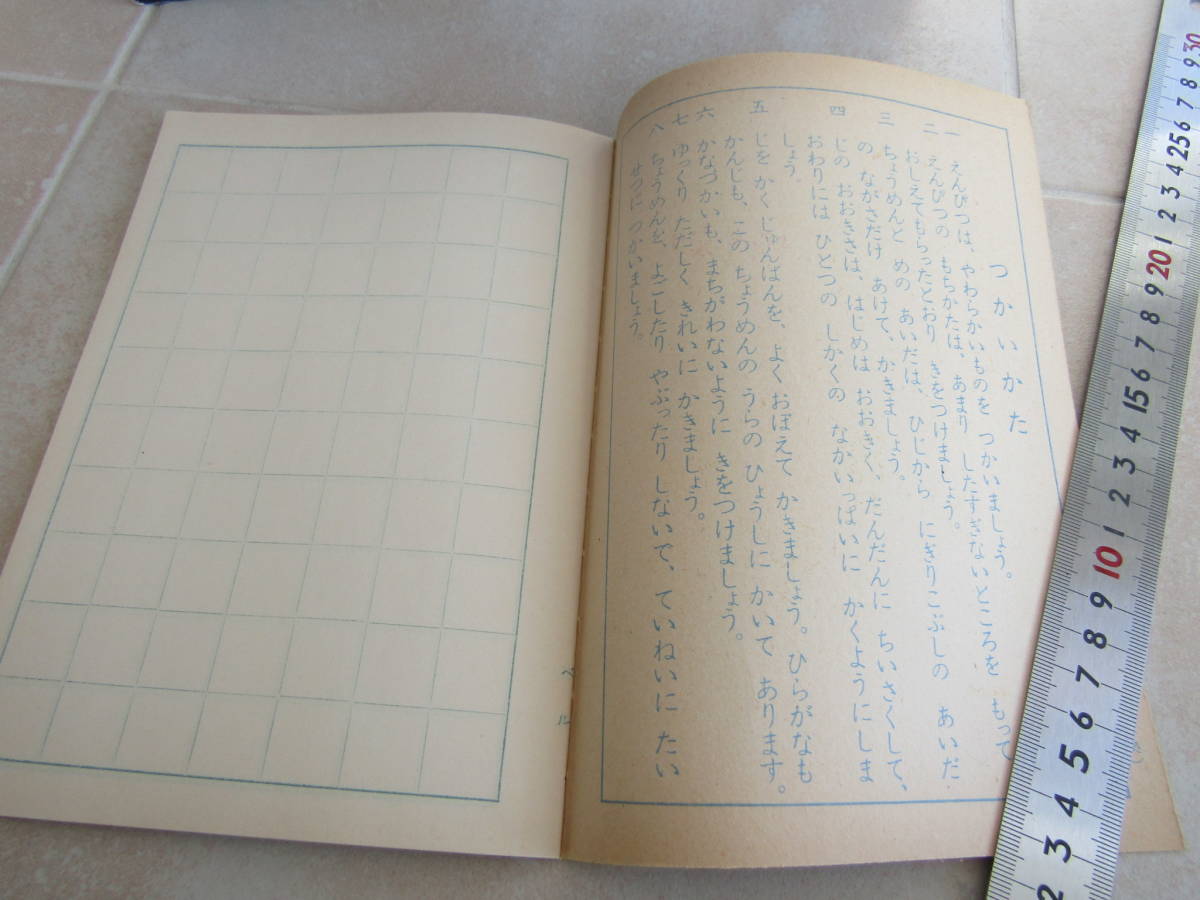 つかいかた
一 えんぴつは、やわらかいものを つかいましょう。
二 えんぴつの もちかたは、あまり したすぎないところを もって
おしえてもらったとおり きをつけましょう。
三 ちょうめんと めの あいだは、ひじから にぎりこぶしの あいだ
の ながさだけ あけて、かきましょう。
四 じの おおきさは、はじめは おおきく、だんだんに ちいさくして、
おわりには ひとつの しかくの なかいっぱいに かくようにしま
しょう。
五 じを かく じゅんばんを、よく おぼえて かきましょう。ひらがなも
かんじも、この ちょうめんの うらの ひょうしに かいて あります。
六 かなづかいも、まちがわないように きをつけましょう。
七 ゆっくり ただしく きれいに かきましょう。
八 ちょうめんを、よごしたり やぶったり しないで、ていねいに たい
せつに つかいましょう。
ベル
30
9
8
7
6
25
4
3
2
1
20
9
8
7
6
15
4
3
2
1
10
9
8
7
6
5
4
3
2